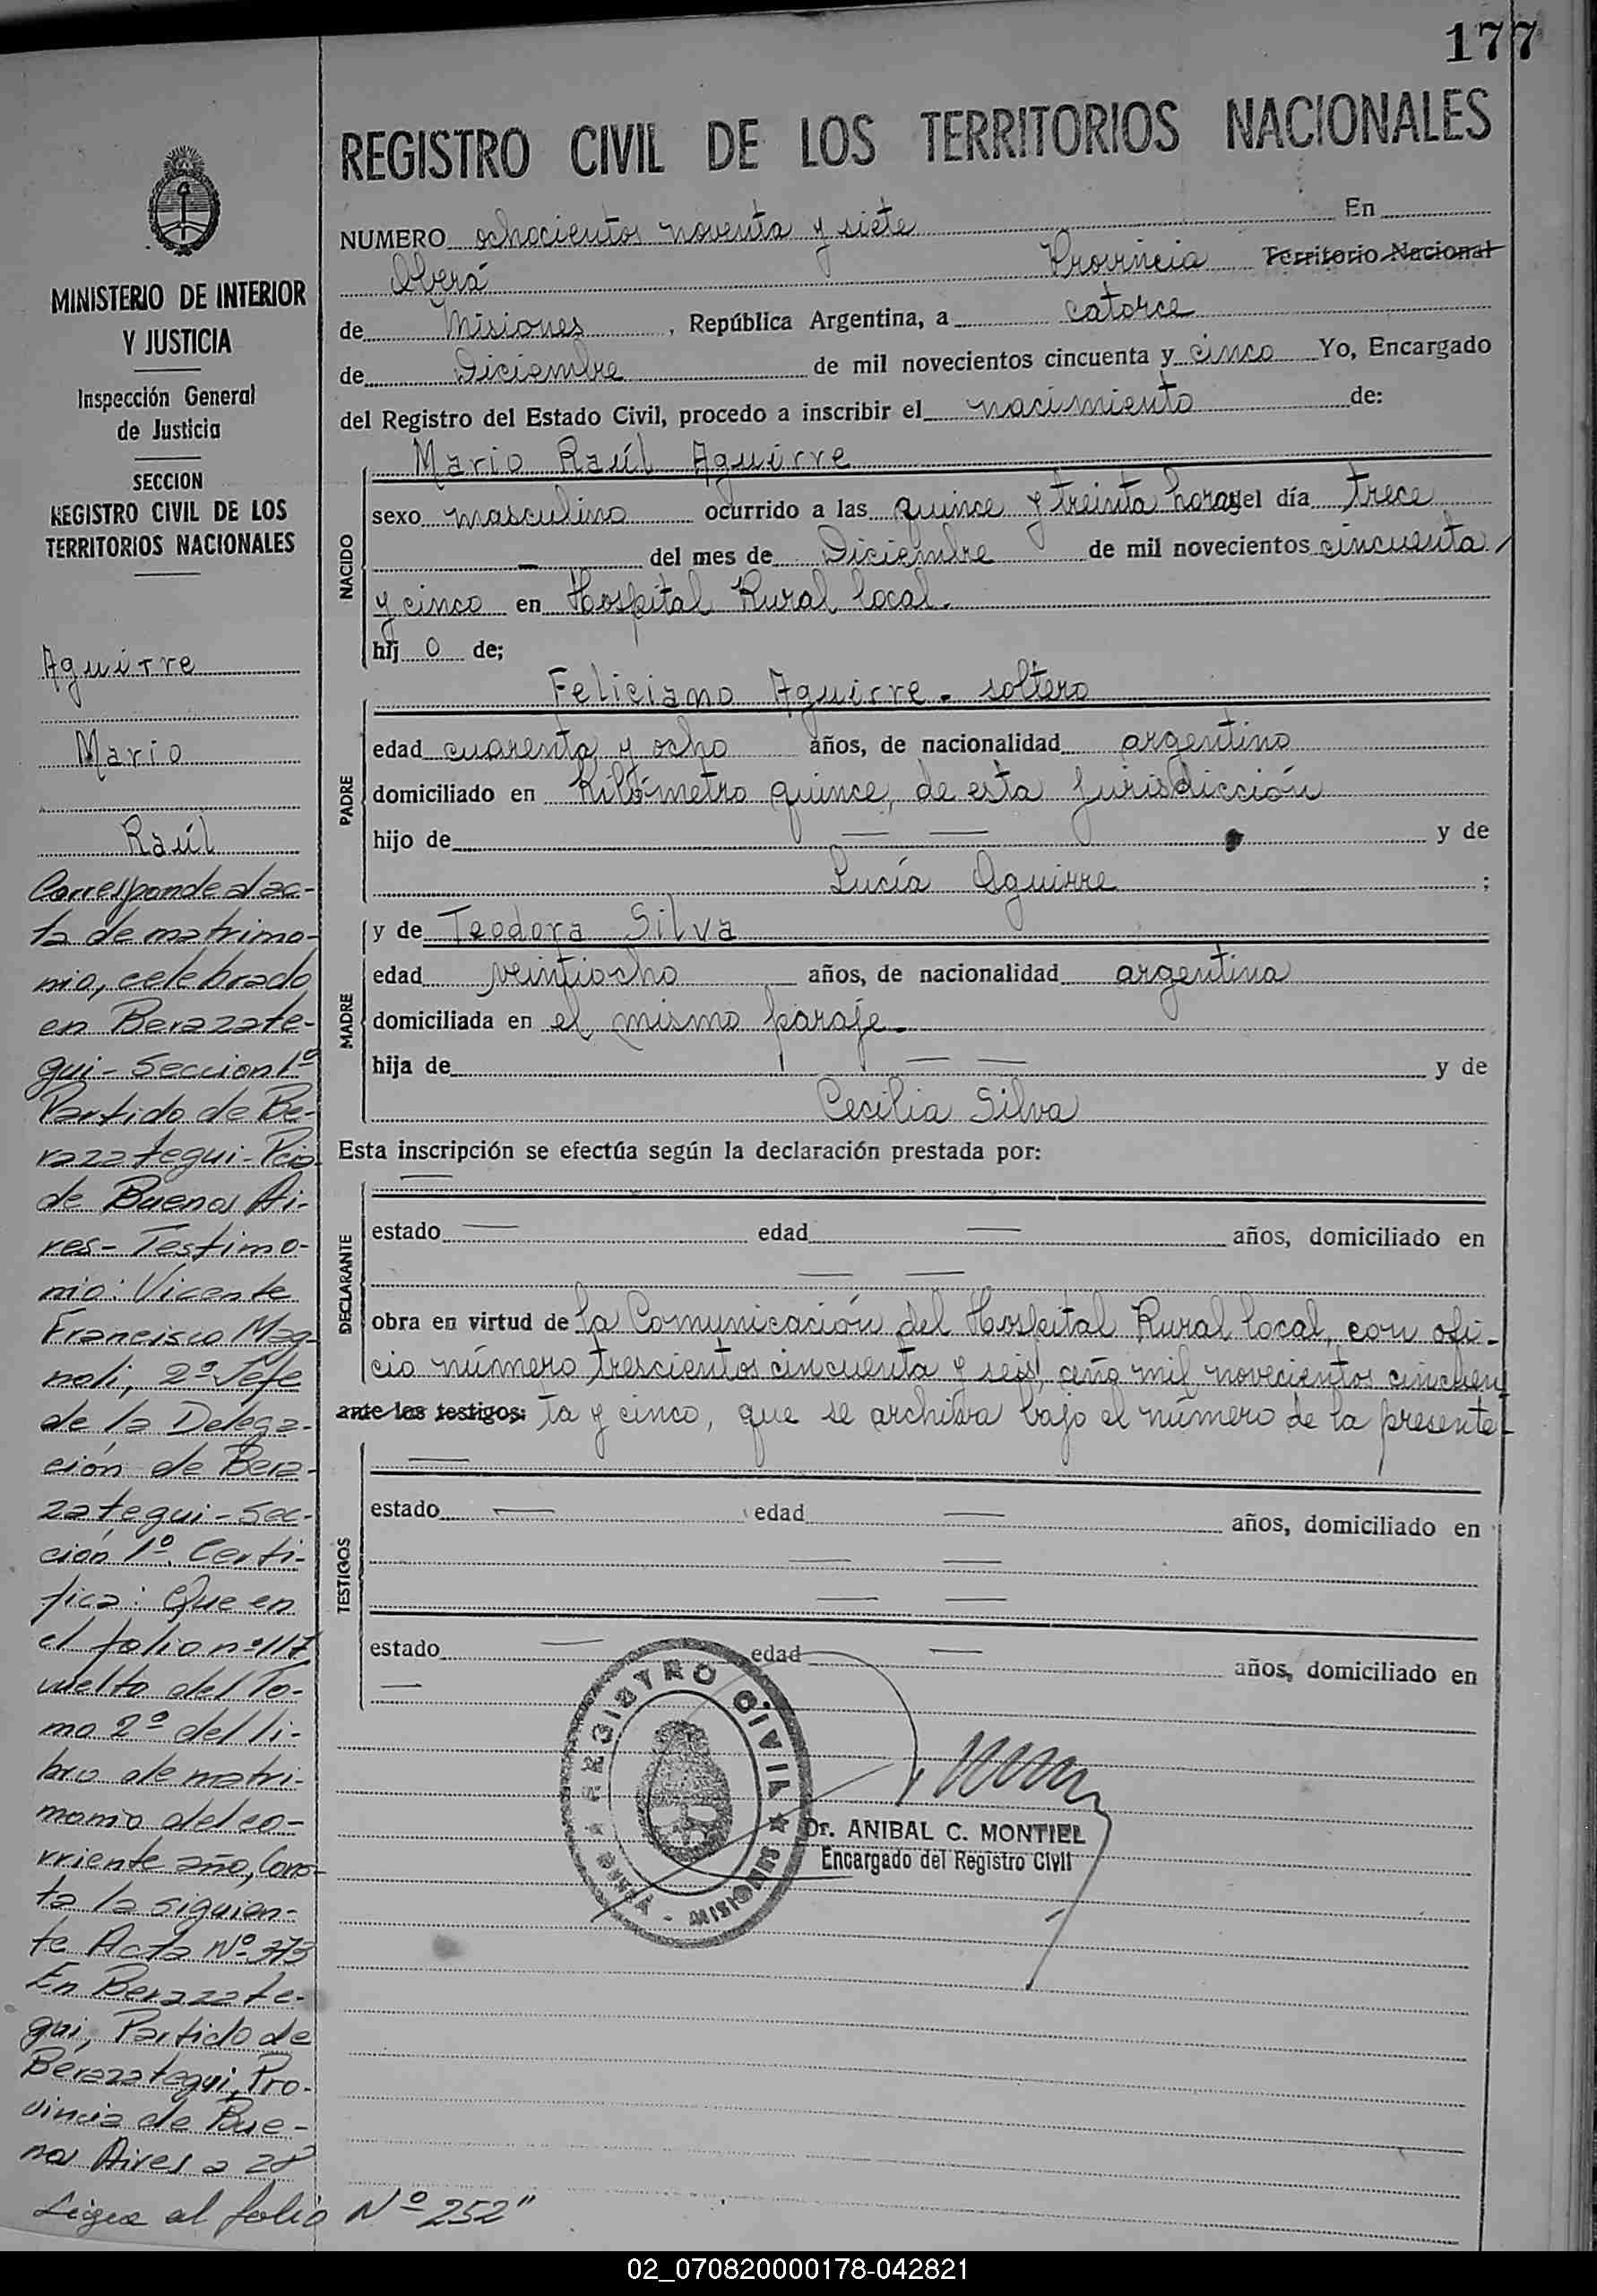 177
REGISTRO CIVIL DE LOS TERRITORIOS NACIONALES
NUMERO ochocientos noventa y siete En
Oberá Provincia Territorio Nacional
de Misiones, República Argentina, a catorce
de Diciembre de mil novecientos cincuenta y cinco Yo, Encargado
del Registro del Estado Civil, procedo a inscribir el nacimiento de:
NACIDO
Mario Raúl Aguirre
sexo masculino ocurrido a las quince y treinta horas del día trece
— del mes de Diciembre de mil novecientos cincuenta
y cinco en Hospital Rural local.
hij o de;
PADRE
Feliciano Aguirre - soltero
edad cuarenta y ocho años, de nacionalidad argentino
domiciliado en Kilómetro quince, de esta jurisdicción
hijo de — — y de
Lucía Aguirre ;
MADRE
y de Teodora Silva
edad veintiocho años, de nacionalidad argentina
domiciliada en el mismo paraje.
hija de — — y de
Cecilia Silva
Esta inscripción se efectúa según la declaración prestada por:
DECLARANTE
—
estado — edad — años, domiciliado en
— —
obra en virtud de la Comunicación del Hospital Rural local, con ofi-
cio número trescientos cincuenta y seis, año mil novecientos cincuen
ante los testigos: ta y cinco, que se archiva bajo el número de la presente-
TESTIGOS
—
estado — edad — años, domiciliado en
— —
— —
estado — edad — años, domiciliado en
—
REGISTRO CIVIL
OBERA - MISIONES
Dr. ANIBAL C. MONTIEL
Encargado del Registro Civil
MINISTERIO DE INTERIOR
Y JUSTICIA
Inspección General
de Justicia
SECCION
REGISTRO CIVIL DE LOS
TERRITORIOS NACIONALES
Aguirre
Mario
Raúl
Corresponde al ac-
ta de matrimo-
nio, celebrado
en Berazate-
gui - Seccion 1º
Partido de Be-
razategui - Pcia
de Buenos Ai-
res - Testimo-
nio: Vicente
Francisco Mag-
noli, 2º Jefe
de la Delega-
ción de Bera-
zategui - Sec-
ción 1º. Certi-
fica: Que en
el folio nº 117
vuelto del To-
mo 2º del li-
bro de matri-
monio del co-
rriente año, Cons-
ta la siguien-
te Acta Nº 373
En Berazate-
gui, Partido de
Berazategui, Pro-
vincia de Bue-
nos Aires a 28
Sigue al folio Nº 252"
02_070820000178-042821